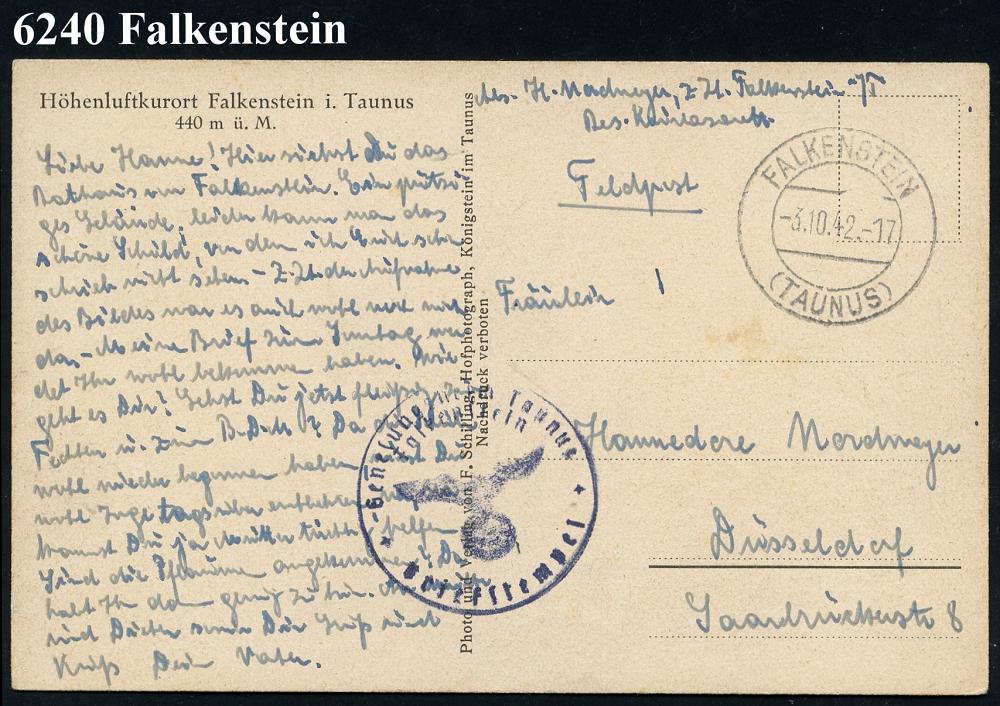 6240 Falkenstein
Höhenluftkurort Falkenstein i. Taunus
440 m ü. M.
Liebe Hanne! Hier siehst Du das
Rathaus von Falkenstein. Ein putzi-
ges Gebäude, leider kann man das
schöne Schild, von dem ich Euch schon
schrieb nicht sehen - Z. Zt. der Aufnahme
des Bildes war es auch wohl noch nicht
da. - Meine Brief zum Sonntag wer-
det Ihr wohl bekommen haben. Wie
geht es Dir? Gehst Du jetzt fleißig zum
Fechten u. zum B.D.M.? Da die
wohl wieder begonnen haben, Du
wohl tagsüber entbehren
kannst Du ja Mutter tüchtig helfen
Sind die Pflaumen angekommen? Da
habt Ihr dann genug zu tun.
und Dir Gruß und
Kuß Dein Vater.
Photo und Verlag von F. Schilling, Hofphotograph, Königstein im Taunus
Nachdruck verboten
Abs. H. Nordmeyer, z. Zt. Falkenstein i/T
Res. Kurlazarett
Feldpost
FALKENSTEIN
-3.10.42.-17
(TAUNUS)
Fräulein
Hannedore Nordmeyer
Düsseldorf
Saarbrückerstr 8
Falkenstein
Taunus
Briefstempel